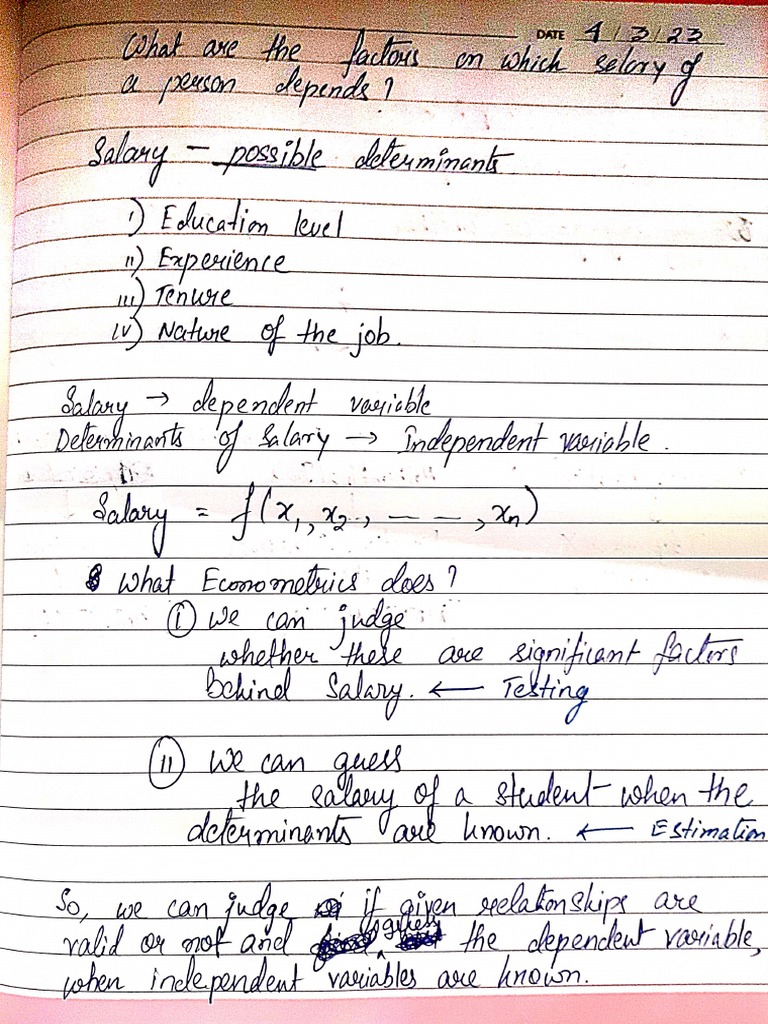 DATE 4/3/23
What are the factors on which selary of
a person depends?
Salary - possible determinants
i) Education level
ii) Experience
iii) Tenure
iv) Nature of the job.
Salary → dependent variable
Determinants of Salary → Independent variable.
Salary = f(x₁, x₂, — —, xₙ)
What Econometrics does?
(i) we can judge
whether these are significant factors
behind Salary. ← Testing
(ii) we can guess
the salary of a student when the
determinants are known. ← Estimation
So, we can judge if given relationships are
valid or not and guess the dependent variable,
when independent variables are known.